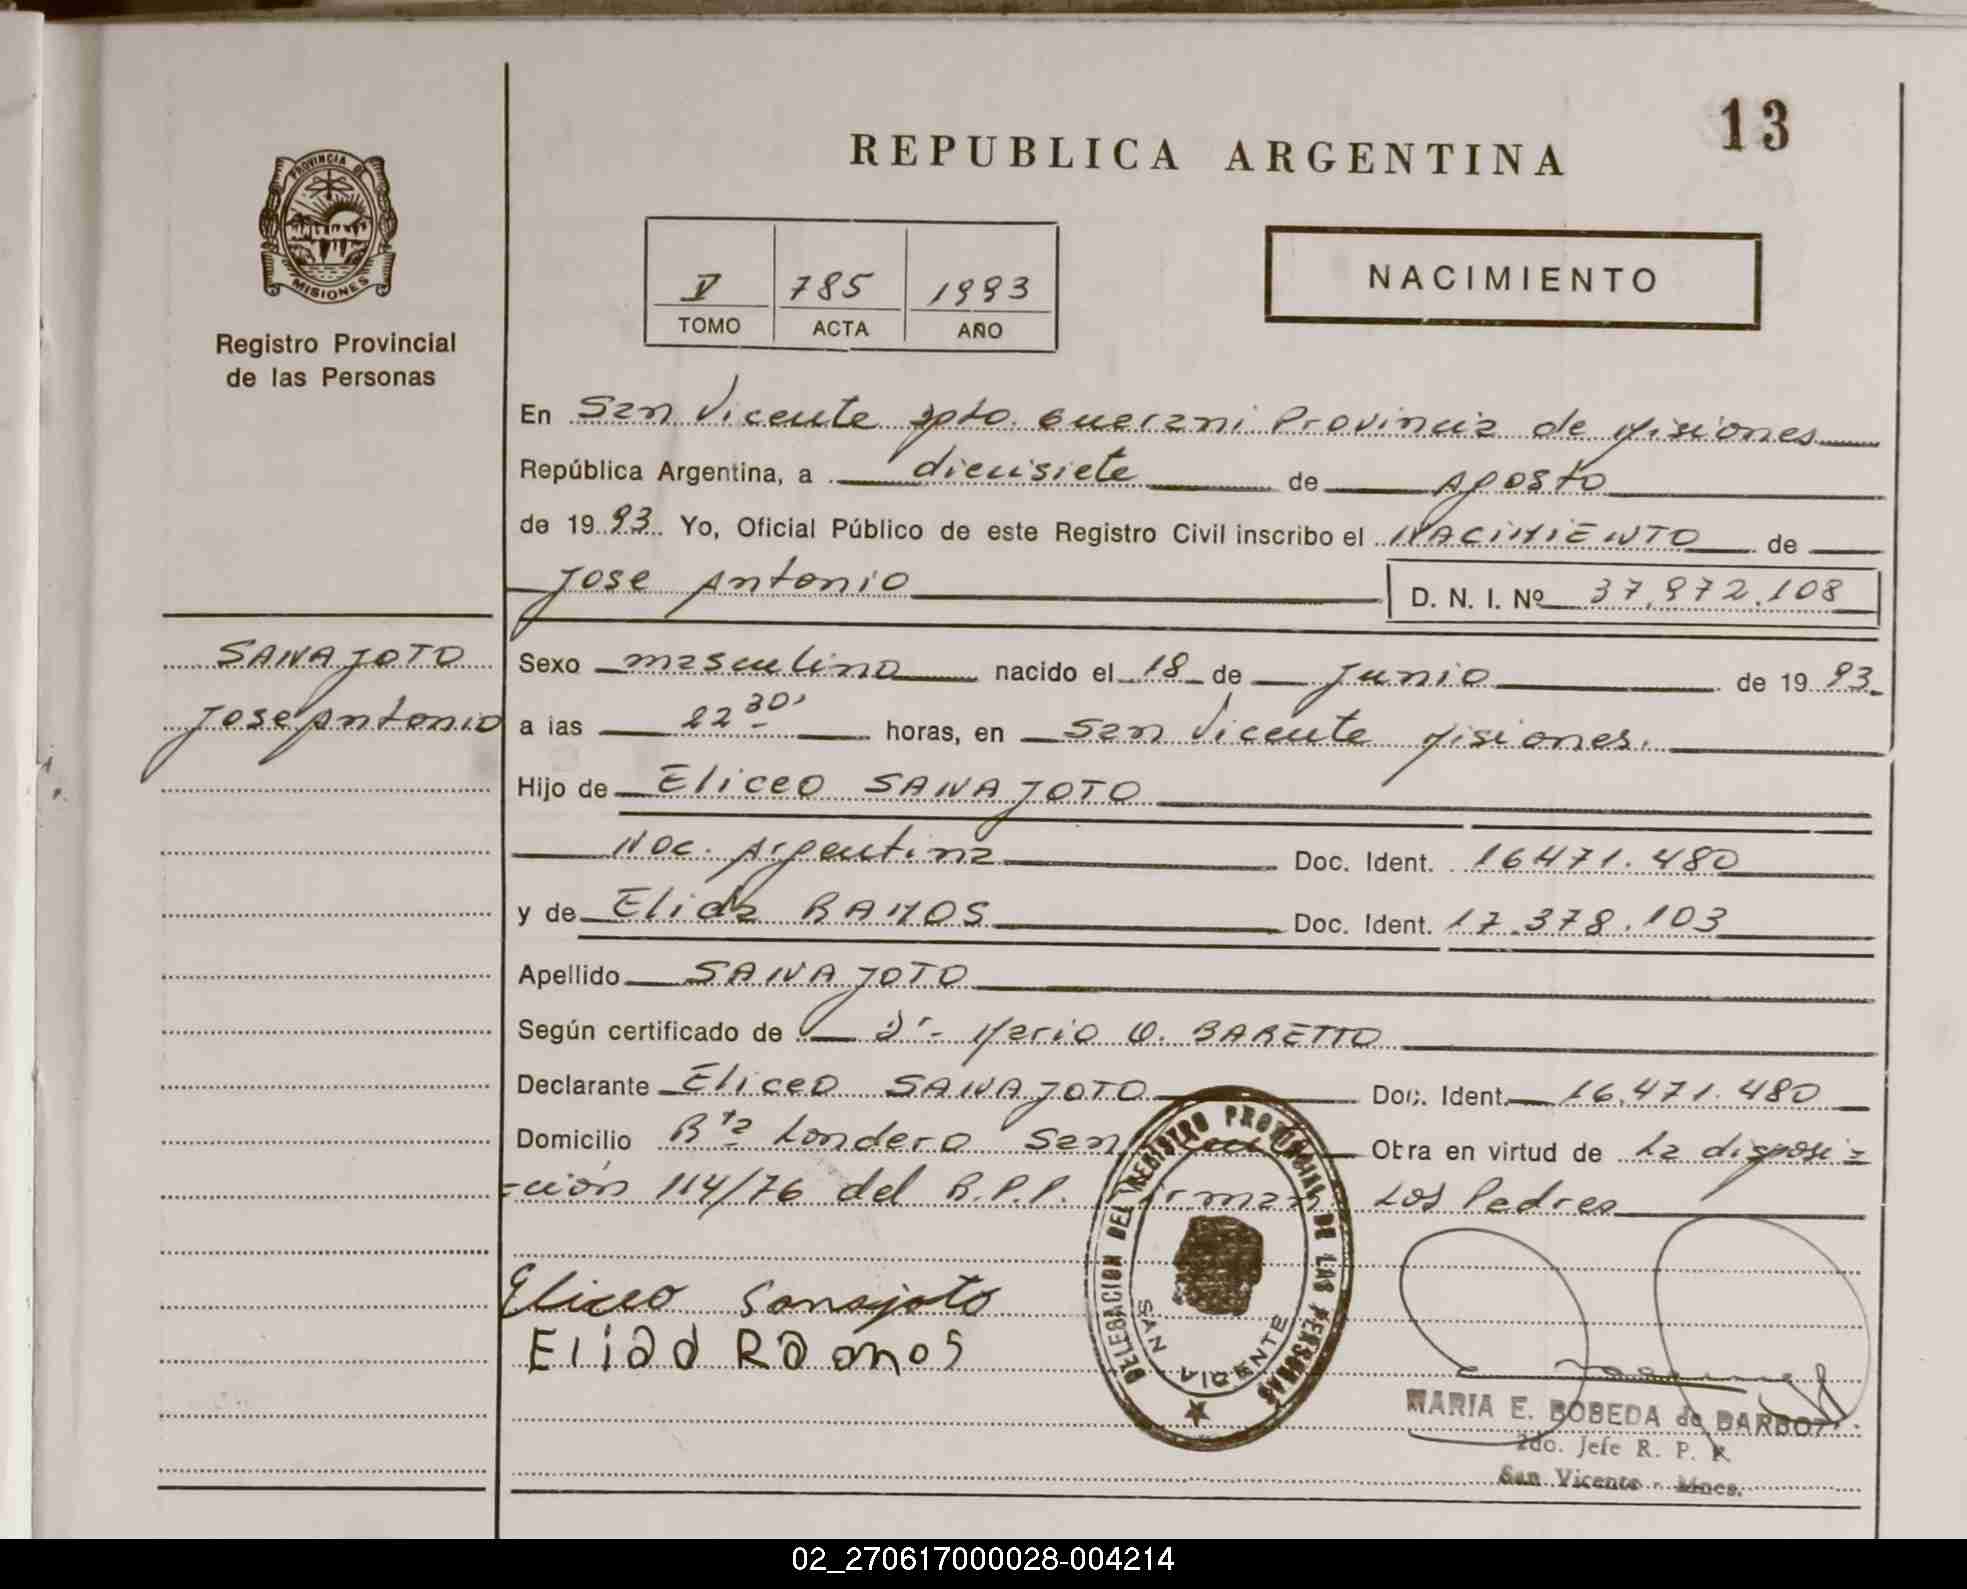 13
REPUBLICA ARGENTINA
PROVINCIA DE
MISIONES
Registro Provincial
de las Personas
V 785 1993
TOMO ACTA AÑO
NACIMIENTO
En San Vicente Dpto. Guarani Provincia de Misiones
República Argentina, a diecisiete de Agosto
de 1993 Yo, Oficial Público de este Registro Civil inscribo el NACIMIENTO de
Jose Antonio D. N. I. Nº 37.972.108
SANAJOTO
Jose Antonio
Sexo masculino nacido el 18 de Junio de 1993
a las 22 30' horas, en San Vicente Misiones.
Hijo de Eliceo SANAJOTO
Nac. Argentina Doc. Ident. 16471.480
y de Elida RAMOS Doc. Ident. 17.378.103
Apellido SANAJOTO
Según certificado de Dr- Mario O. BARETTO
Declarante Eliceo SANAJOTO Doc. Ident. 16.471.480
Domicilio Londero San Otra en virtud de La disposi=
=ción 114/76 del R.P.P. Firman Los Padres
Eliceo Sanajoto
Eliad Ramos
DELEGACION DEL REGISTRO PROVINCIAL DE LAS PERSONAS
SAN VICENTE
MARIA E. BOBEDA de BARBO
2do. Jefe R. P. P.
San Vicente - Mnes.
02_270617000028-004214